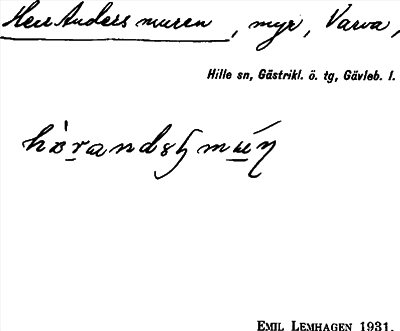 Herr Anders muren, myr, Varva,
Hille sn, Gästrikl. ö. tg, Gävleb. l.
EMIL LEMHAGEN 1931.